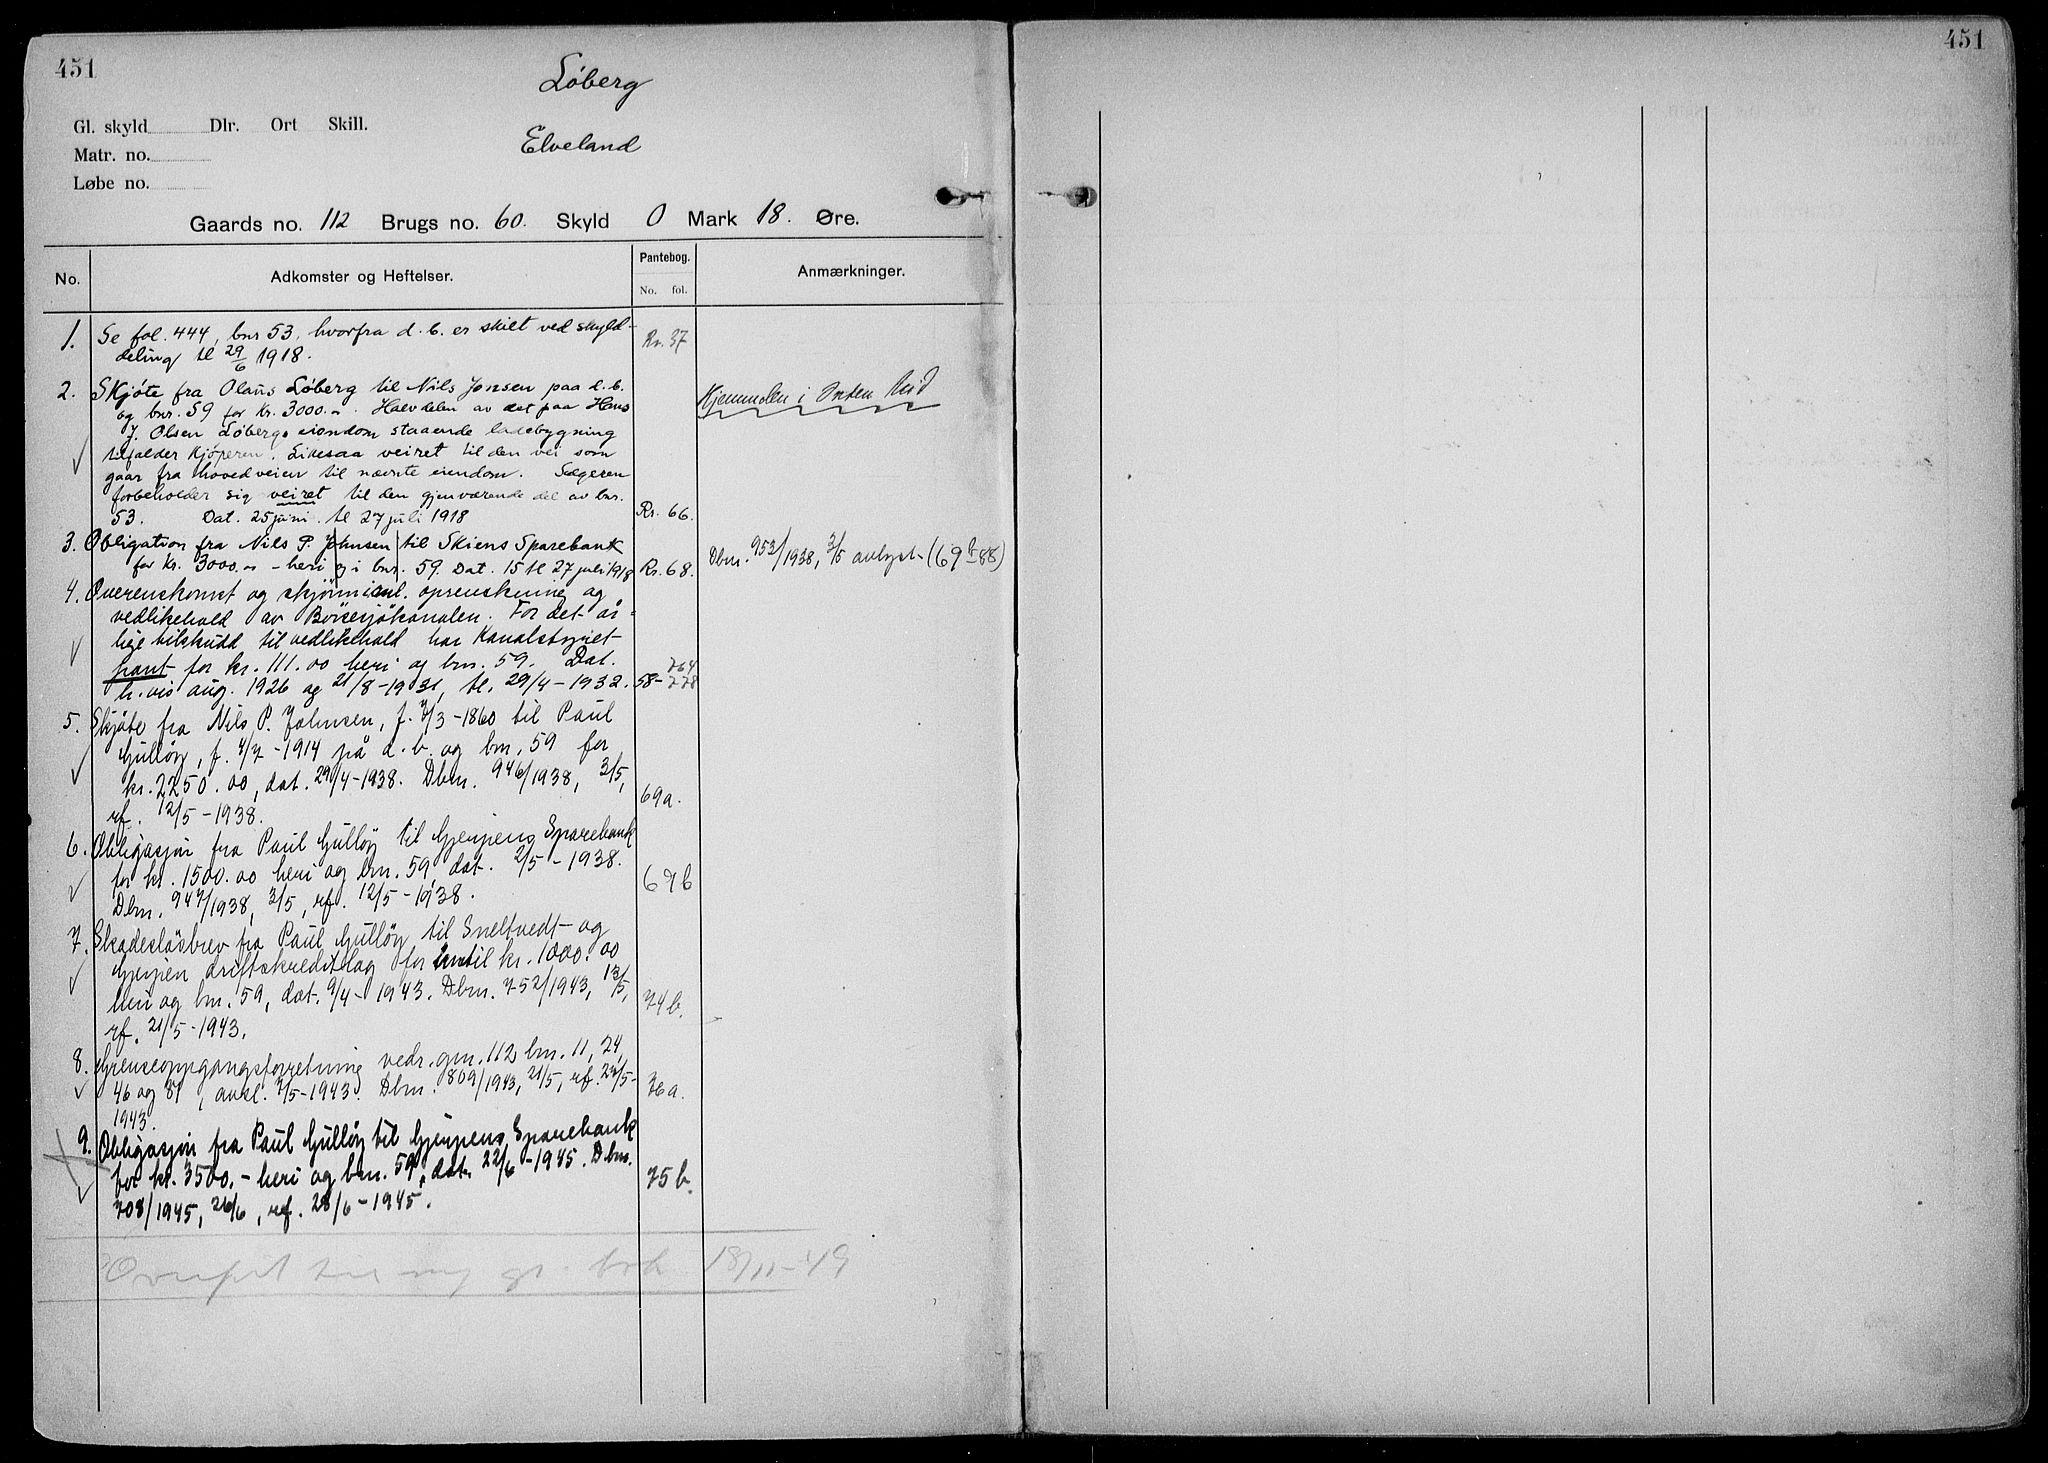 451
451
Løberg
Gl. skyld Dlr. Ort Skill.
Elveland
Matr. no.
Løbe no.
Gaards no. 112 Brugs no. 60. Skyld 0 Mark 18. Øre.
No. Adkomster og Heftelser. Pantebog. No. fol. Anmærkninger.
1. Se fol. 444, bnr 53, hvorfra d. b. er skilt ved skyld-
deling tl 29/6 1918. Rr. 37
2. Skjøte fra Olaus Løberg til Nils Jonsen paa d. b.
og bnr. 59 for Kr. 3000.- Halvdelen av det paa Hans
J. Olsen Løbergs eiendom staaende ladebygning
tilfalder Kjøperen. Likesaa veiret til den vei som
gaar fra hovedveien til nævnte eiendom. Sælgeren
forbeholder sig veiret til den gjenværende del av bnr.
53. Dat. 25 juni tl 27 juli 1918 Rr. 66.
3. Obligation fra Nils P. Johnsen til Skiens Sparebank
for Kr. 3000.- heri og i bnr. 59. Dat. 15 tl 27 juli 1918 Rr. 68. Dbnr. 953/1938, 3/5 avlyst (69 b 88)
4. Overenskomst og skjønn anl. oprenskning og
vedlikehold av Börsesjökanalen. For det år-
lige tilskudd til vedlikehold har Kanalstyret
pant for kr. 111.00 heri og bnr. 59. Dat.
h.vis aug. 1926 og 21/8-1931, tl. 29/4-1932. 58- 764 778
5. Skjøte fra Nils P. Johnsen, f. 7/3-1860 til Paul
Gulløy, f. 4/7-1914 på d. b. og bnr. 59 for
kr. 2250.00, dat. 29/4-1938. Dbnr. 946/1938, 3/5,
rf. 12/5-1938. 69a.
6. Obligasjon fra Paul Gulløy til Gjerpens Sparebank
for kr. 1500.00 heri og bnr. 59, dat. 2/5-1938.
Dbnr. 947/1938, 3/5, rf. 12/5-1938. 69b
7. Skadesløsbrev fra Paul Gulløy til Sneltvedt- og
Gjerpen driftskredittlag for inntil kr. 1000.00
heri og bnr. 59, dat. 9/4-1943. Dbnr. 752/1943, 13/5,
rf. 21/5-1943. 74b.
8. Grenseoppgangsforretning vedr. gnr. 112 bnr. 11, 24,
46 og 81, avsl. 7/5-1943. Dbnr. 809/1943, 21/5, rf. 27/5-
1943. 76a.
9. Obligasjon fra Paul Gulløy til Gjerpens Sparebank
for kr. 3500.- heri og bnr. 59, dat. 22/6-1945. Dbnr.
708/1945, 26/6, rf. 28/6-1945. 75b.
Overført til ny gr. bok 18/11-49